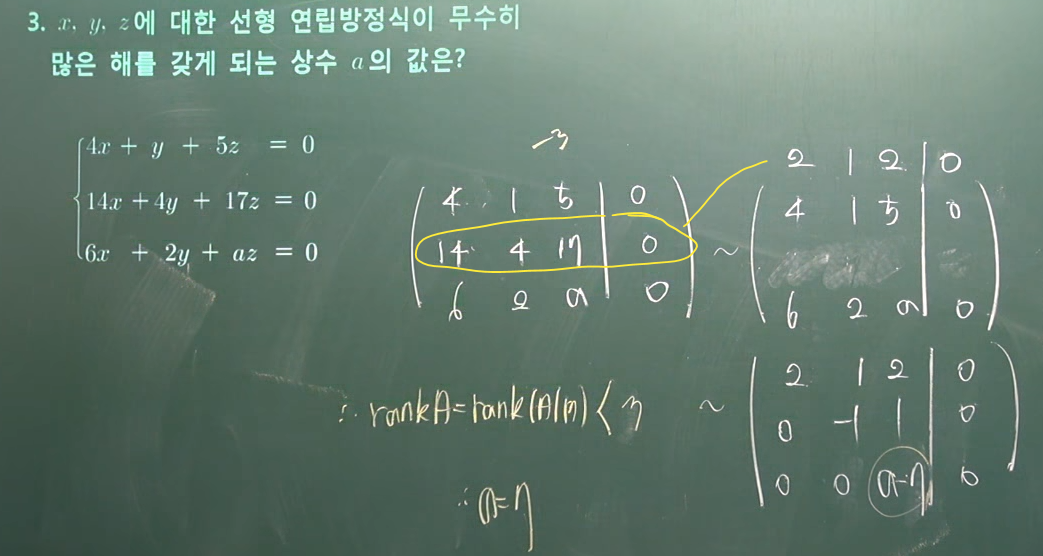 3. x, y, z에 대한 선형 연립방정식이 무수히
많은 해를 갖게 되는 상수 a의 값은?
4x + y + 5z = 0
14x + 4y + 17z = 0
6x + 2y + az = 0
-3
4 1 5 | 0
14 4 17 | 0
6 2 a | 0
~
2 1 2 | 0
4 1 5 | 0
6 2 a | 0
~
2 1 2 | 0
0 -1 1 | 0
0 0 a-7 | 0
∴ rankA = rank(A|B) < 3
∴ a=7